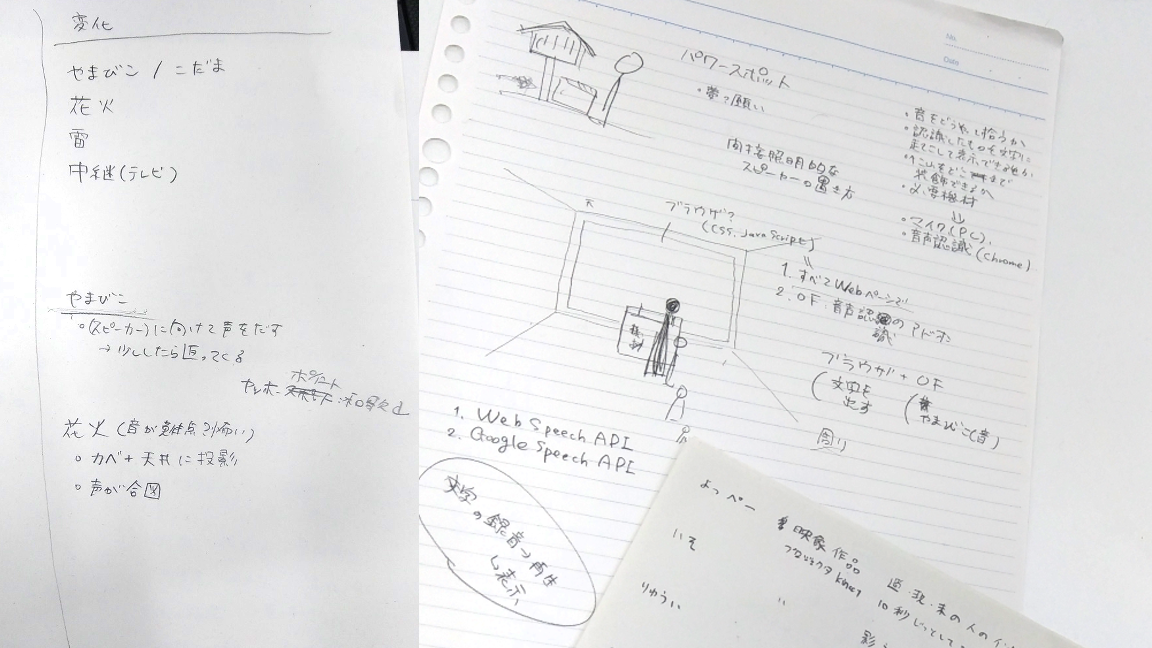 変化
やまびこ / こだま
花火
雷
中継(テレビ)
やまびこ
(スピーカー)に向けて声をだす
→少ししたら返ってくる
ヤッホー
花火(音が 怖い)
カベ+天井に投影
声が合図
No.
Date
パワースポット
願い
間接照明的な
スピーカーの置き方
・音をどうやって拾うか
・認識したものを文字に
表示できるか
装飾できるか
・必要機材
⇓
・マイク(PC)
・音声認識(Chrome)
ブラウザ?
(CSS, JavaScript)
1. すべてWebページで
2. OF:音声認識のアドオン
ブラウザ + OF
(文字を
出す
(やまびこ(音)
周り
1. Web Speech API
2. Google Speech API
文字
の録音→再生
↳表示
よっぺー 映像作品
いそ プロジェクタ kinect
りゅうい 〃
過・現・未の人の
10秒じっとして